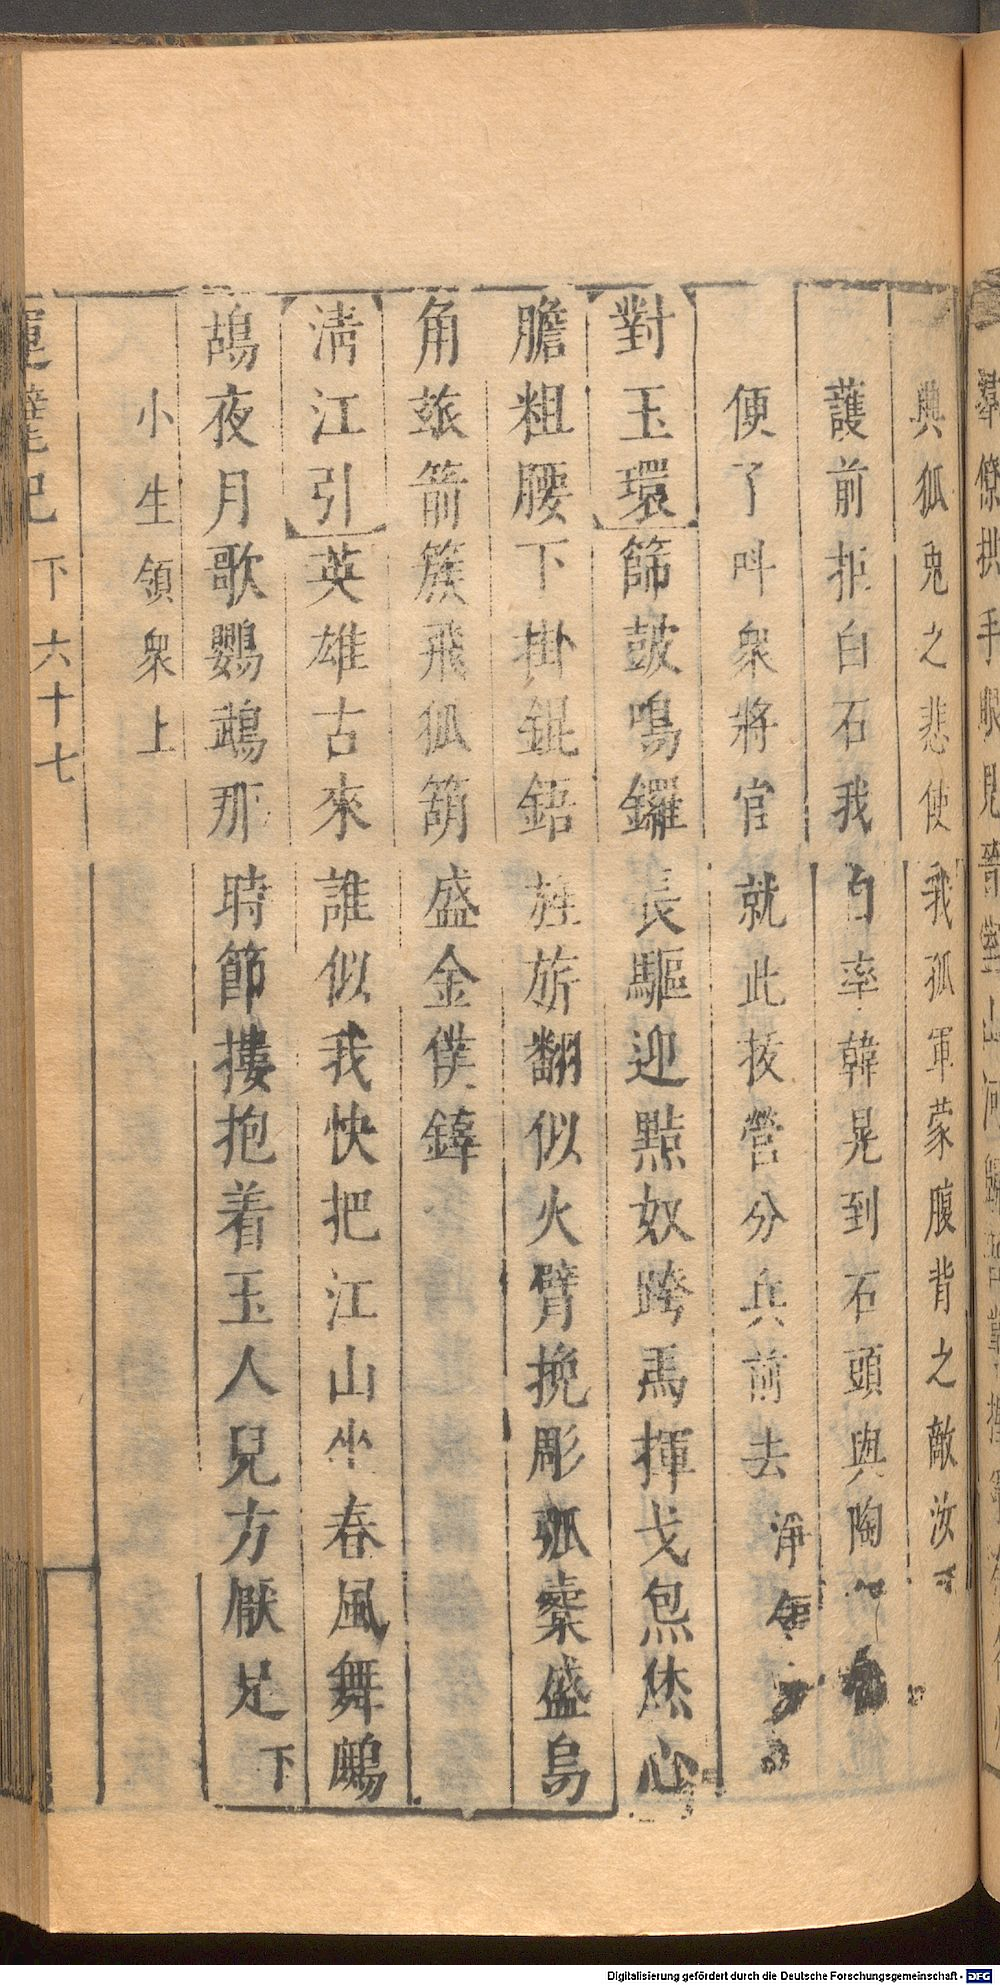 興狐兎之悲使我孤軍蒙腹背之敵汝
護前拒白石我自率韓晃到石頭與陶
便了叫衆將官就此拔營分兵前去淨
對玉環篩皷鳴鑼長驅迎㸃奴跨馬揮戈炰烋心
膽粗腰下掛錕鋙旌旂翻似火臂挽彫弧櫜盛烏
角𣃁箭簇飛狐箶盛金僕鋍
淸江引英雄古來誰似我快把江山坐春風舞鷓
鴣夜月歌鸚鵡那時節摟抱着玉人兒方厭足下
小生領衆上
運甓記 下 六十七
Digitalisierung gefördert durch die Deutsche Forschungsgemeinschaft - DFG